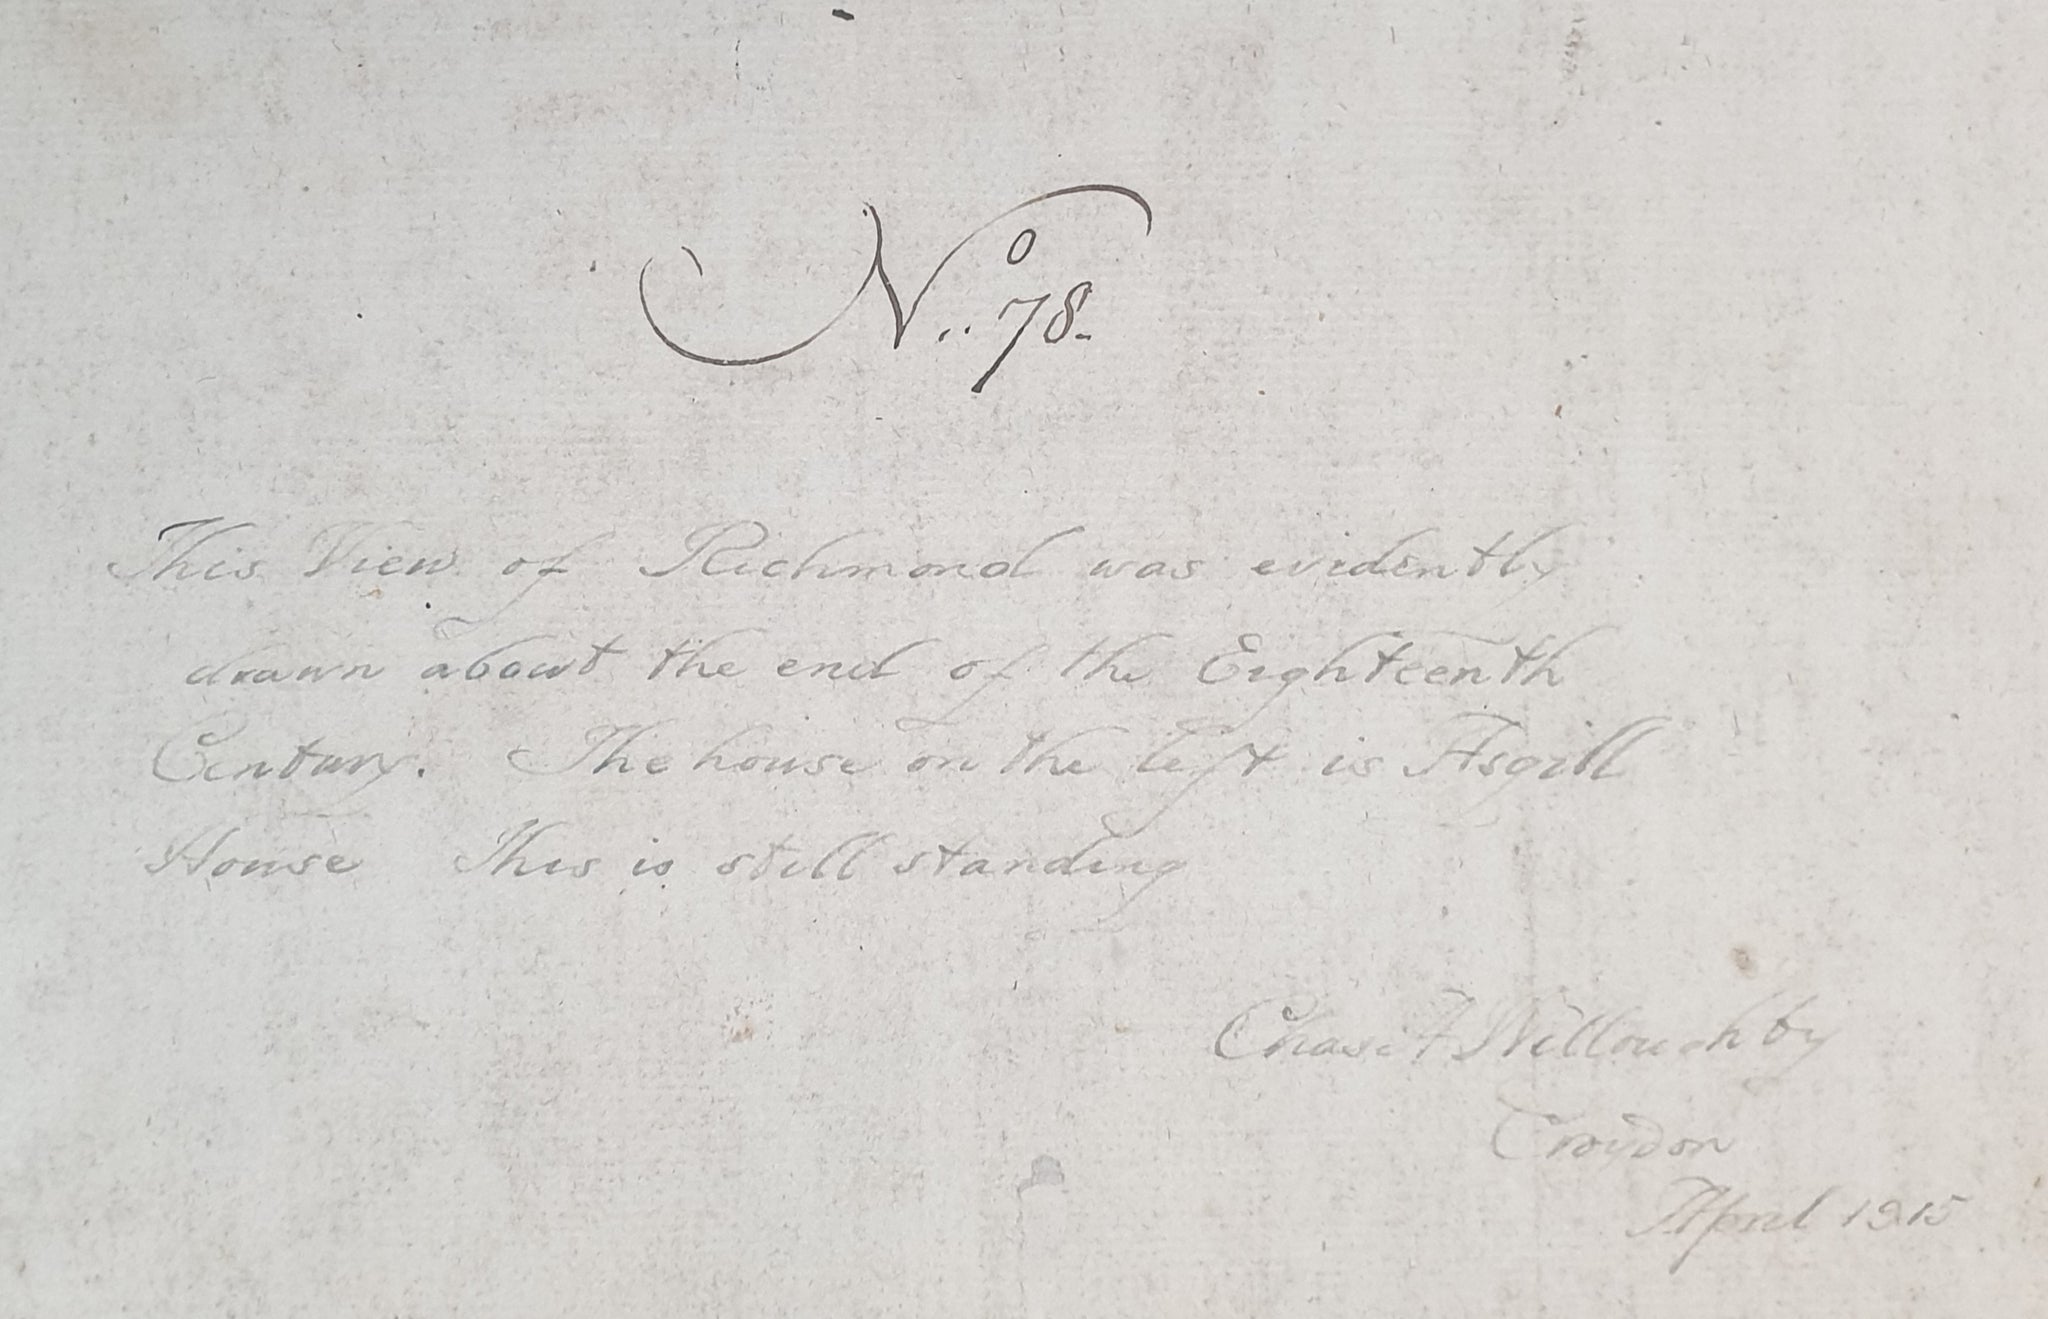 No.. 78.
This View of Richmond was evidently
drawn about the end of the Eighteenth
Century. The house on the left is Asgill
House This is still standing
Chas. A Willoughby
Croydon
April 1915